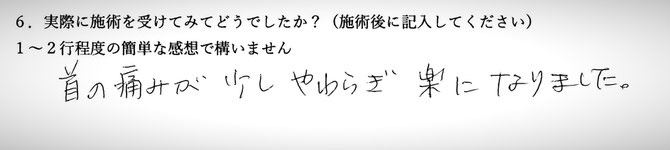 ６．実際に施術を受けてみてどうでしたか？（施術後に記入してください）
１～２行程度の簡単な感想で構いません
首の痛みが少しやわらぎ楽になりました。